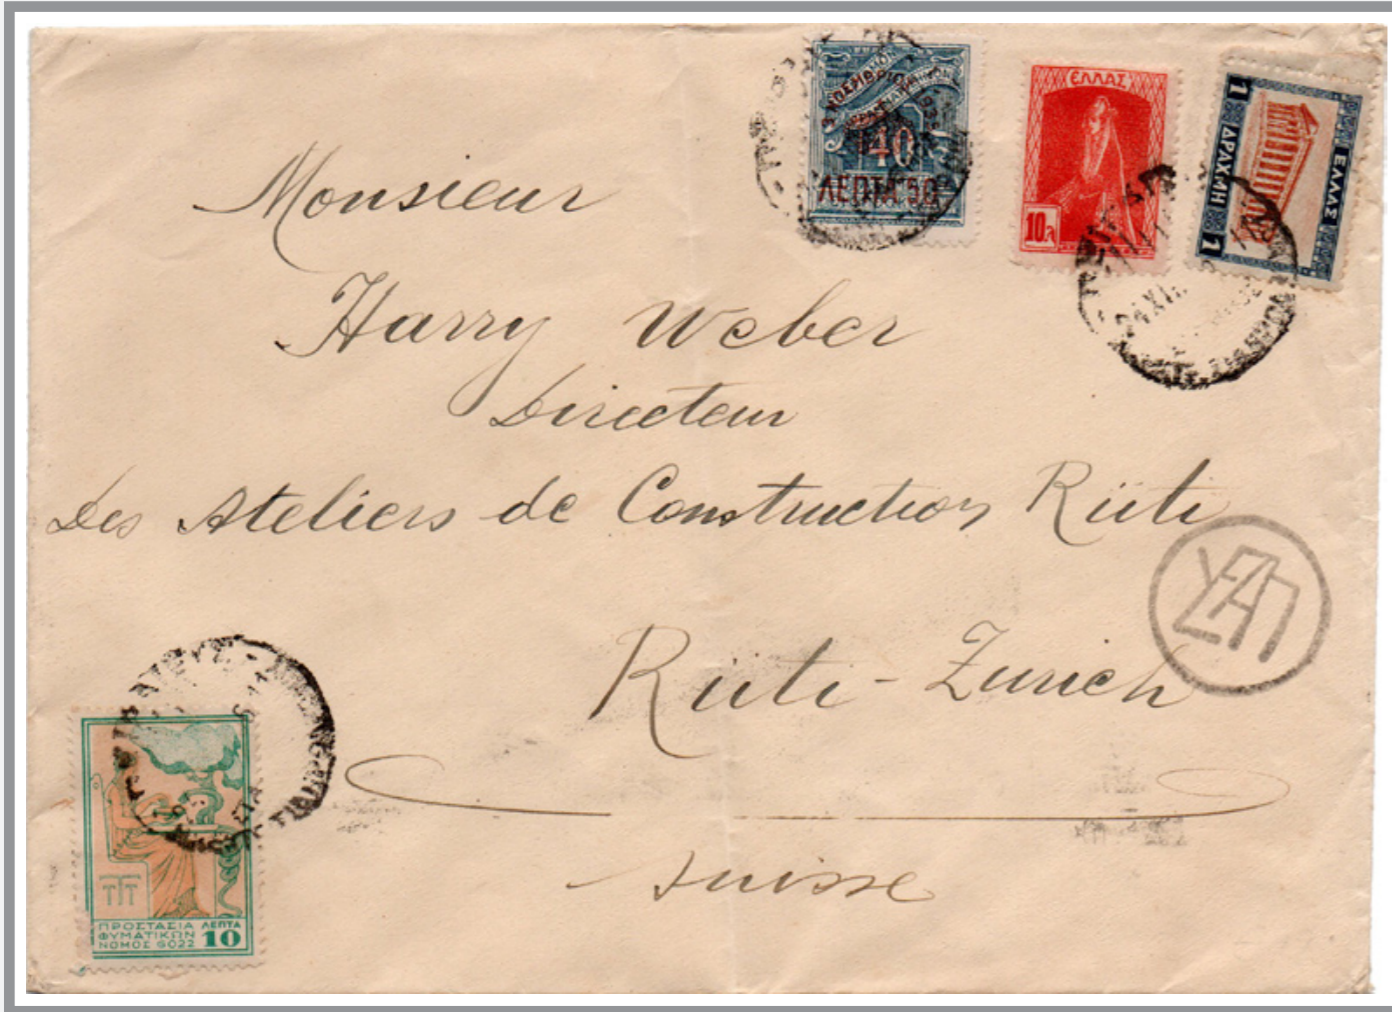 ΛΕΠΤΑ 50
40
ΕΛΛΑΣ
10λ
1 ΔΡΑΧΜΗ 1
ΕΛΛΑΣ
Monsieur
Harry Weber
Directeur
Des Ateliers de Construction Rüti
Rüti-Zurich
Suisse
ΠΡΟΣΤΑΣΙΑ
ΦΥΜΑΤΙΚΩΝ
ΝΟΜΟΣ 6022
ΛΕΠΤΑ
10